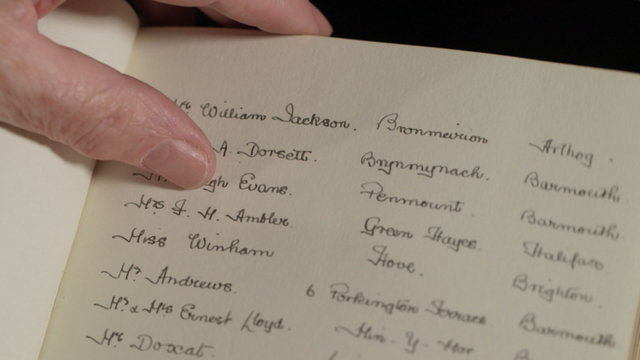 William Jackson. Bronmeirion Arthog.
A. Dorsett. Brynmynach. Barmouth.
Evans. Penmount. Barmouth
Mrs J. H. Ambler Green Hayes. Halifax.
Miss Winham Hove. Brighton.
Mr Andrews. 6 Porkington Terrace. Barmouth
Mr & Mrs Ernest Lloyd.
Mr Doxat.